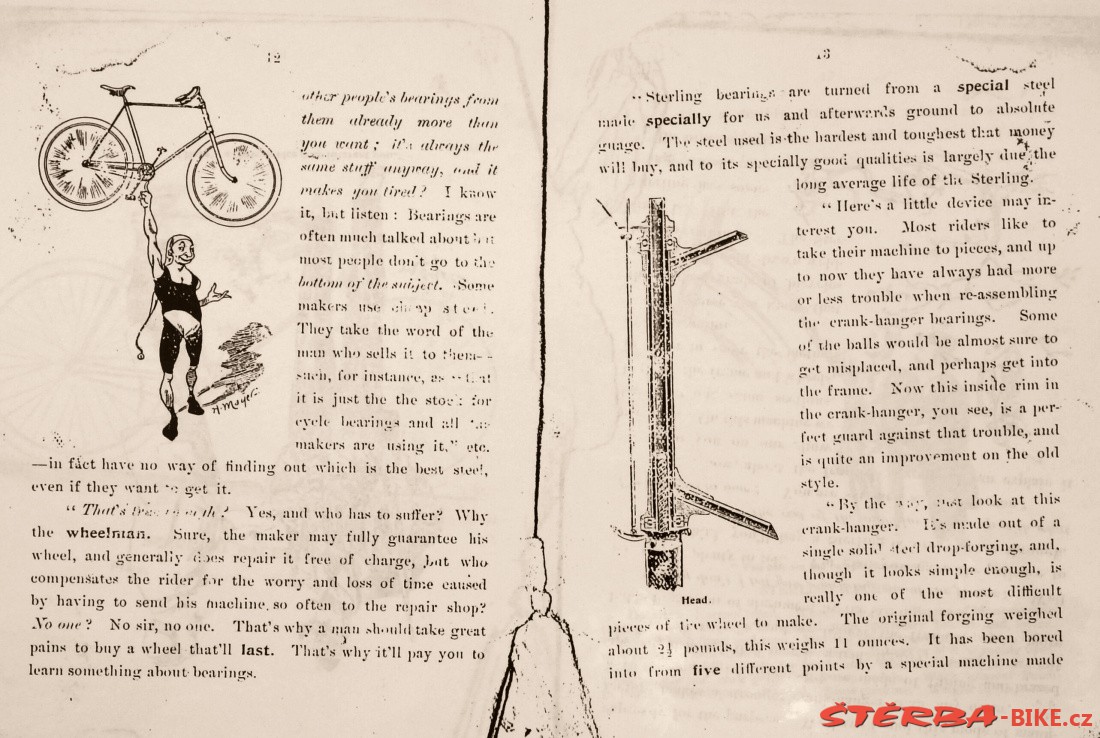 12
other people's bearings from
them already more than
you want; it's always the
same stuff anyway, and it
makes you tired? I know
it, but listen: Bearings are
often much talked about but
most people don't go to the
bottom of the subject. Some
makers use cheap steel.
They take the word of the
man who sells it to them—
such, for instance, as "that
it is just the the stock for
cycle bearings and all the
makers are using it," etc.
—in fact have no way of finding out which is the best steel,
even if they want to get it.
"That's true enough? Yes, and who has to suffer? Why
the wheelman. Sure, the maker may fully guarantee his
wheel, and generally does repair it free of charge, but who
compensates the rider for the worry and loss of time caused
by having to send his machine so often to the repair shop?
No one? No sir, no one. That's why a man should take great
pains to buy a wheel that'll last. That's why it'll pay you to
learn something about bearings.
A. Mayer.
13
"Sterling bearings are turned from a special steel
made specially for us and afterwards ground to absolute
guage. The steel used is the hardest and toughest that money
will buy, and to its specially good qualities is largely due the
long average life of the Sterling.
"Here's a little device may in-
terest you. Most riders like to
take their machine to pieces, and up
to now they have always had more
or less trouble when re-assembling
the crank-hanger bearings. Some
of the balls would be almost sure to
get misplaced, and perhaps get into
the frame. Now this inside rim in
the crank-hanger, you see, is a per-
fect guard against that trouble, and
is quite an improvement on the old
style.
"By the way, just look at this
crank-hanger. It's made out of a
single solid steel drop-forging, and,
though it looks simple enough, is
really one of the most difficult
Head.
pieces of the wheel to make. The original forging weighed
about 2½ pounds, this weighs 11 ounces. It has been bored
into from five different points by a special machine made
ŠTĚRBA-BIKE.cz